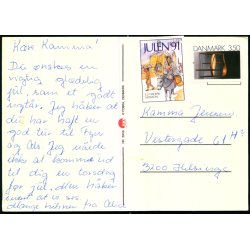 Kære Kamma!
Du ønskes en
rigtig glædelig
jul, samt et godt
nytår. Jeg håber at
du har haft en
god tur til Fyn
og Als Jeg nåede
ikke at komme ud
til dig en torsdag
før jul. Men håber
mange hilsner fra
JULEN '91
DANMARK 3.50
Kamma Jensen
Vestergade 61
3200 Helsinge